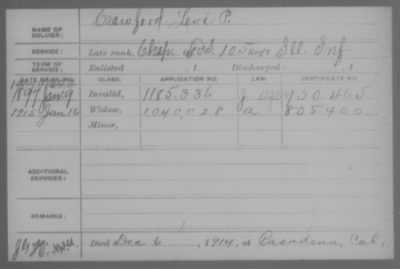 NAME OF SOLDIER: Crawford, Levi P.
SERVICE: Late rank, Chap. 10 Ill. Inf.
TERM OF SERVICE: Enlisted , 1 Discharged , 1
DATE OF FILING. CLASS. APPLICATION NO. LAW. CERTIFICATE NO.
1897 Jan 9 Invalid, 1185.336
1915 Jan 16 Widow, 1,040,028 a 805400
Minor,
ADDITIONAL SERVICES:
REMARKS:
Died Dec 6, 1914, at Pasadena, Cal.